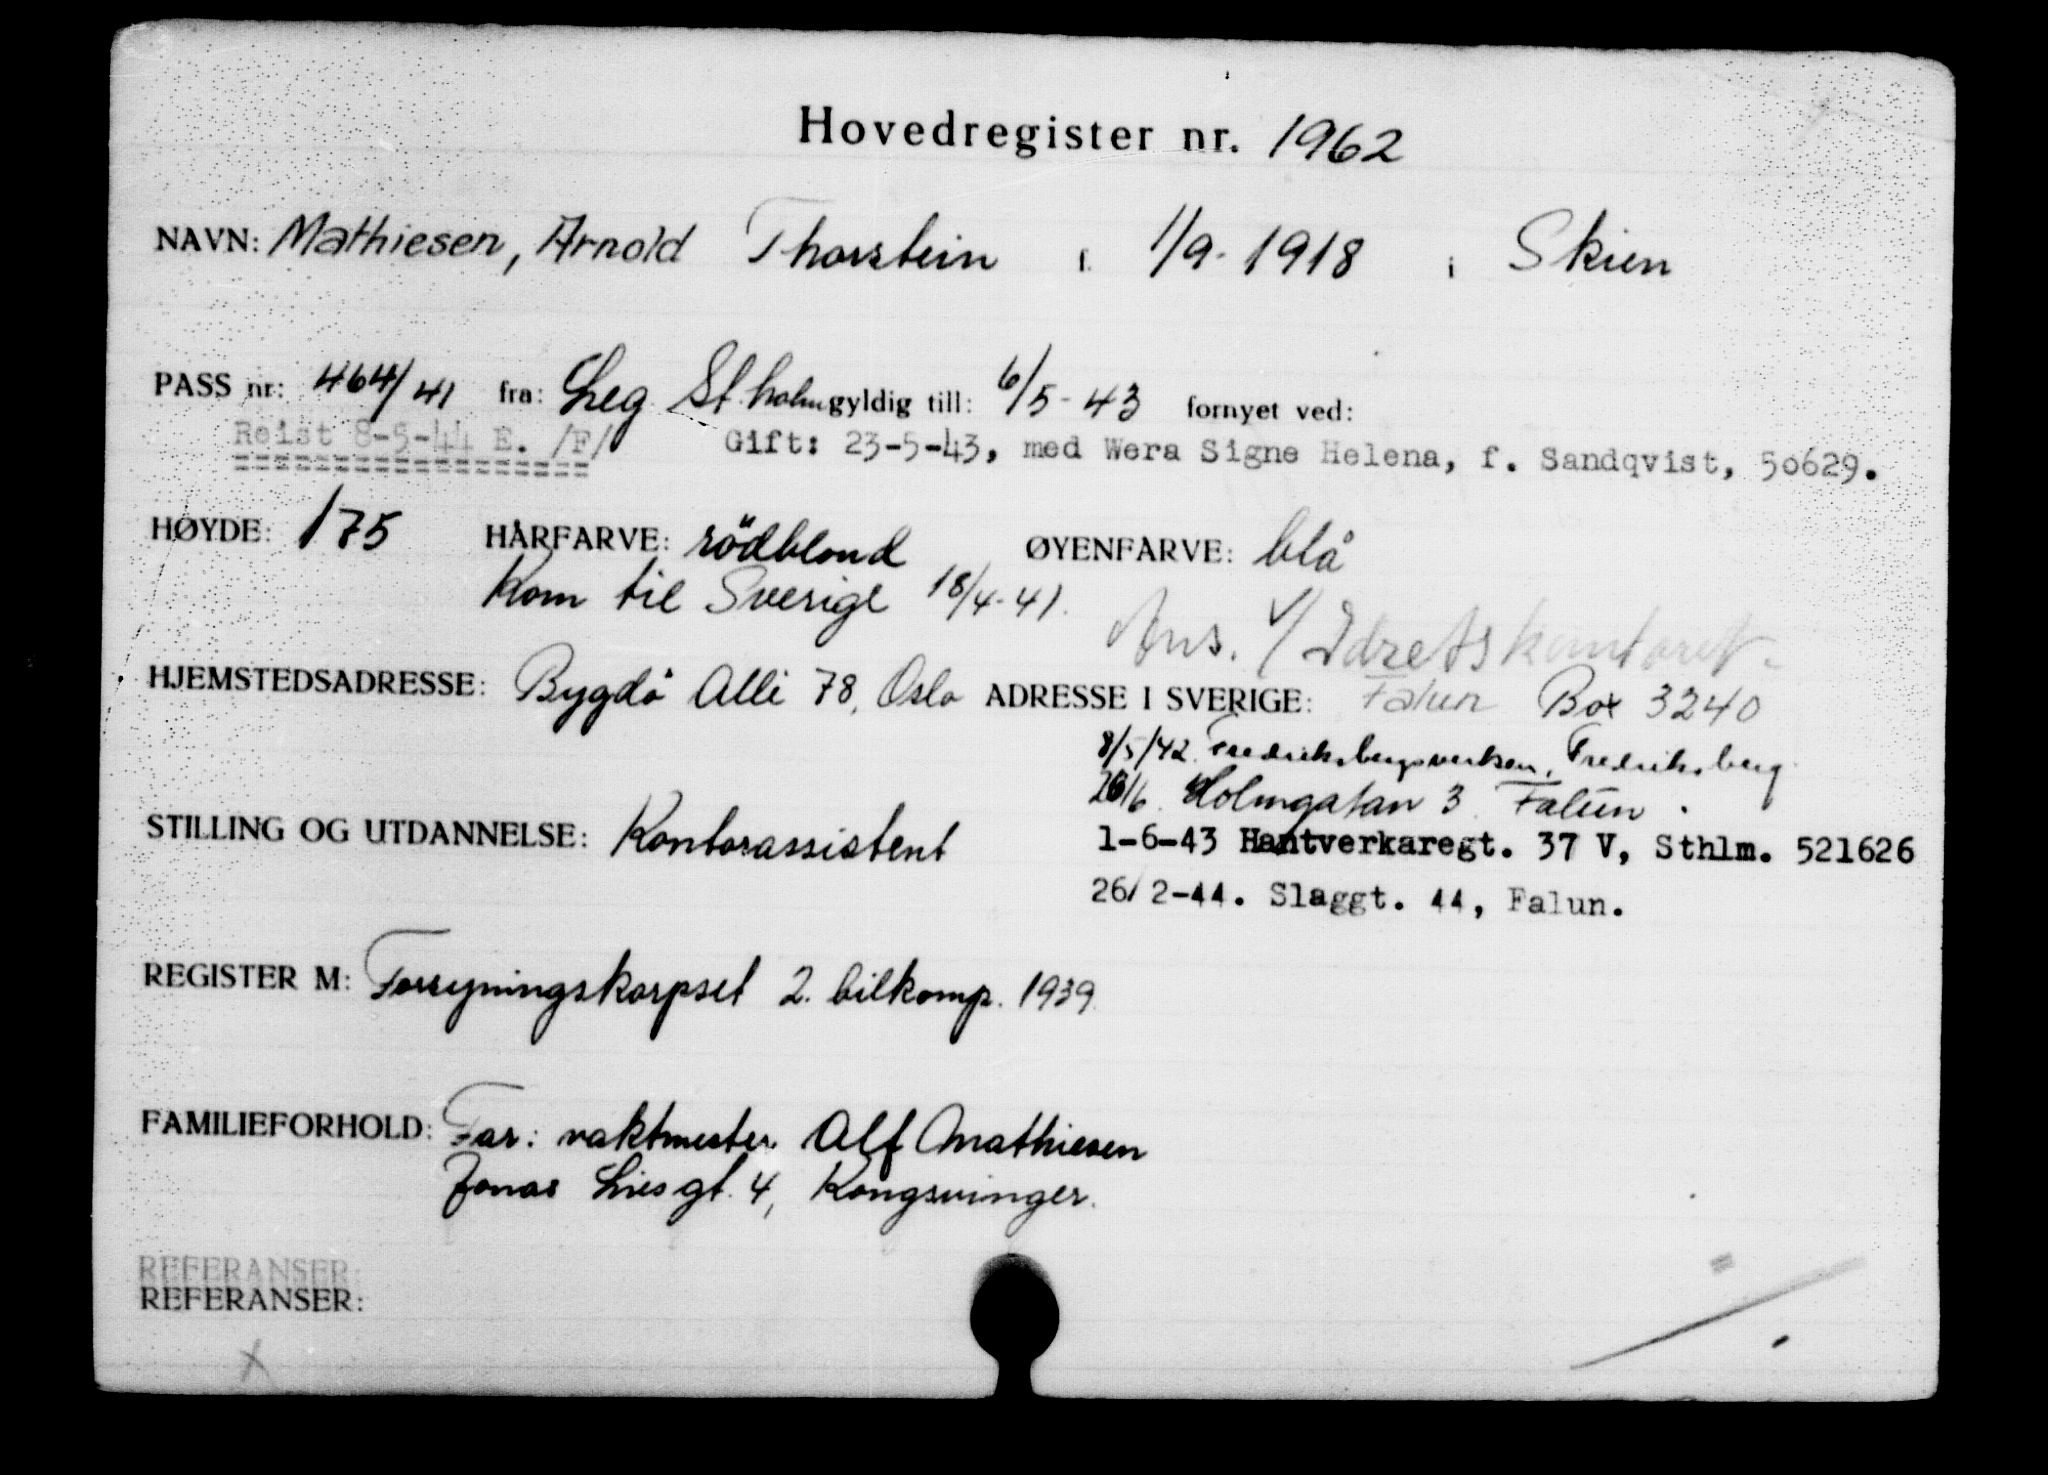 Hovedregister nr. 1962
NAVN: Mathiesen, Arnold Thorstein f. 1/9-1918 i Skien
PASS nr: 464/41 fra: Leg St.holm gyldig till: 6/5-43 fornyet ved:
Reist 8-5-44 E. /F/ Gift: 23-5-43, med Wera Signe Helena, f. Sandqvist, 50629.
HØYDE: 175 HÅRFARVE: rödblond ØYENFARVE: blå
Kom til Sverige 18/4-41.
Ans. v/ Idretskontoret.
HJEMSTEDSADRESSE: Bygdö Alle 78, Oslo ADRESSE I SVERIGE: Falun Box 3240
8/5/42. Fredriksbergsverken, Fredriksberg
26/6. Holmgatan 3. Falun.
STILLING OG UTDANNELSE: Kontorassistent
1-6-43 Hantverkaregt. 37 V, Sthlm. 521626
26/2-44. Slaggt. 44, Falun.
REGISTER M: Forsyningskorpset 2. bilkomp. 1939.
FAMILIEFORHOLD: Far: vaktmester Alf Mathiesen
Jonas Liesgt. 4, Kongsvinger.
REFERANSER:
REFERANSER: